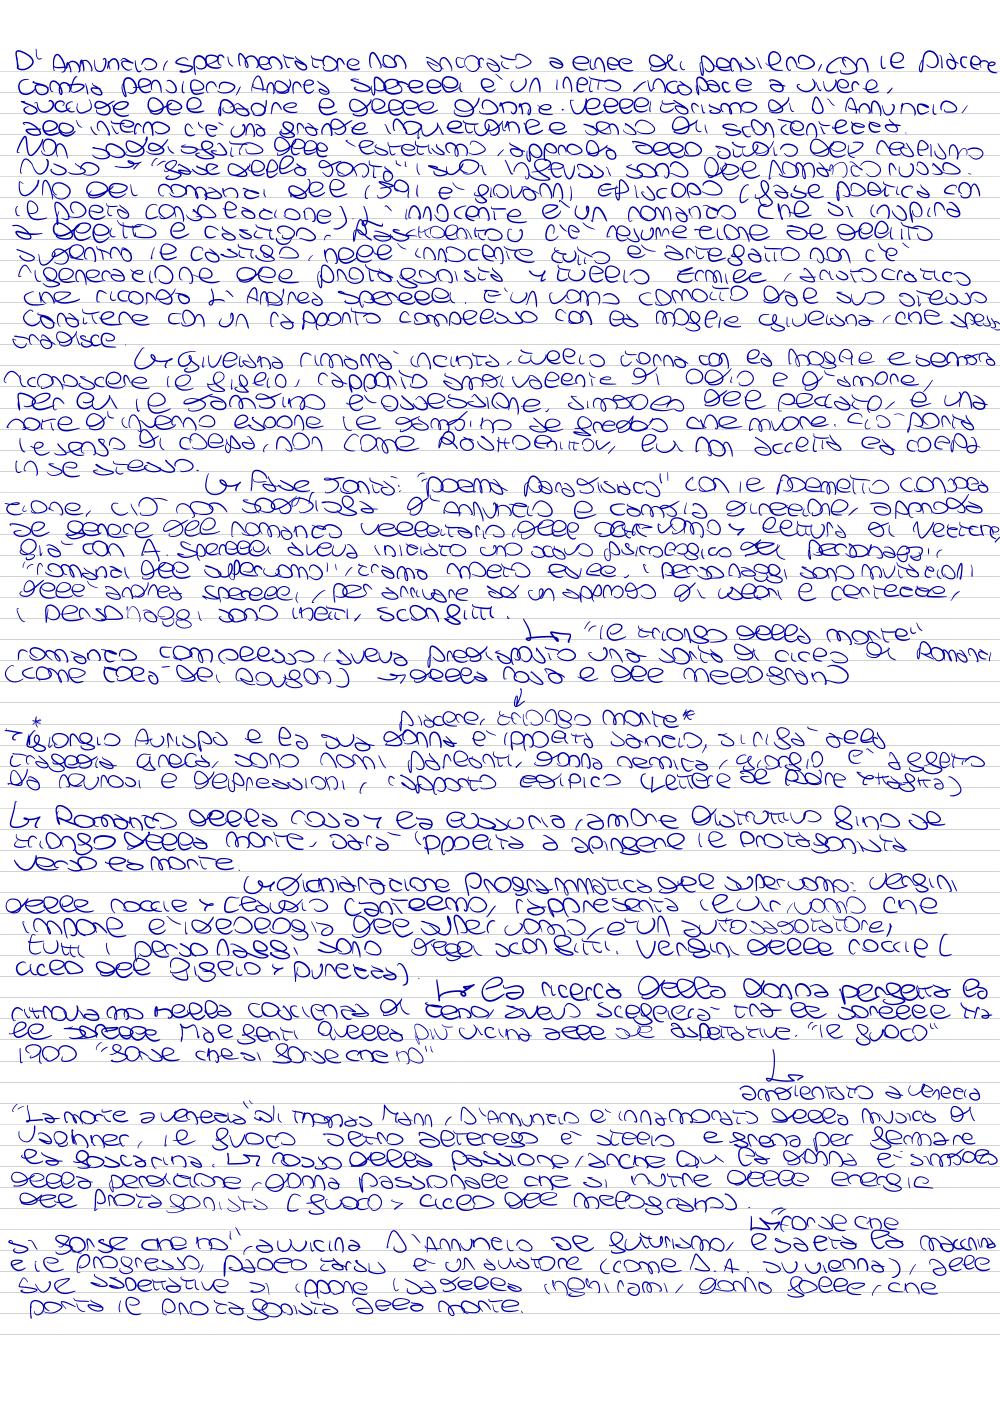 D'Annuncio, sperimentatore non ancorato a linee di pensiero, con il Piacere
cambia pensiero, Andrea Sperelli è un inetto, incapace a vivere,
succube del padre e delle donne. Velleitarismo di D'Annuncio,
all'interno c'è una grande inquietudine e senso di scontentezza.
Non soddisfatto dell'estetismo, approda allo studio del nesessimo
russo → "fase della bontà" i suoi ingressi sono del romanzo russo.
Uno dei romanzi del 1891 è Giovanni Episcopo (fase poetica con
il poeta consolazione). L'innocente è un romanzo che si inspira
a delitto e castigo,
subentro il castigo, nell'innocente tutto è artefatto non c'è
rigenerazione del protagonista → Tullio Ermile, aristocratico
che ricorda l'Andrea Sperelli. È un uomo corrotto dal suo stesso
carattere con un rapporto complesso con la moglie Giuliana, che spesso
tradisce.
↳ Giuliana rimarrà incinta, Tullio torna con la moglie e sembra
riconoscere il figlio, rapporto ambivalente di odio e d'amore,
per cui il bambino è ossessione, simbolo del peccato, e una
notte d'inverno espone il bambino al freddo che muore. Ciò porta
il senso di colpa, non come Roskolnikov, lui non accetta la colpa
in se stesso.
↳ Fase bontà: "poema paradisiaco" con il poemetto consola
zione, ciò non soddisfa D'Annuncio e cambia direzione, approda
al genere del romanzo velleitario dell' oltreuomo → lettura di
già con A. Sperelli aveva iniziato uno scavo psicologico dei personaggi,
"romanzi del superuomo", trama molto esile, i personaggi sono mutazioni
dell'Andrea Sperelli, per arrivare ad un approdo di valori e certezze,
i personaggi sono inetti, sconfitti.
↳ "il trionfo della morte"
romanzo complesso, aveva predisposto una sorta di ciclo di Romanzi
(come Zola dei Rougon) → della rosa e del melograno
↓
piacere, trionfo morte*
* → Giorgio Aurispa e la sua donna è Ippolita Sanzio, si rifà alla
tragedia Greca, sono nomi parlanti, donna nemica, Giorgio è affetto
da neurosi e depressioni, rapporto edipico (lettere al Padre Kafka)
↳ Romanzo della rosa → la lussuria, amore distruttivo fino al
trionfo della morte, sarà Ippolita a spingere il protagonista
verso la morte.
↳ Dichiarazione Programmatica del superuomo: vergini
delle rocce → Claudio Cantelmo, rappresenta il vir, uomo che
impone l'ideologia del superuomo, è un autosabotatore,
tutti i personaggi sono degli sconfitti. Vergini delle roccie (
ciclo del giglio → purezza).
↳ La ricerca della donna perfetta la
ritroviamo nella coscienza di Zeno, aveva scegliere tra le sorelle tra
le sorelle Malfenti quella più vicina alle sue aspettative. "Il fuoco"
1900 "Forse che si forse che no"
↳ ambientato a Venezia
"La morte a Venezia" di Thomas Mann, D'Annuncio è innamorato della musica di
Vaghner, il fuoco dell'altro è Stelio e frena per fermare
la Foscarina. ↳ rosso della passione, anche qui la donna è simbolo
della perdizione, donna passionale che si nutre delle energie
del protagonista (fuoco > ciclo del melograno).
↳ "Forse che
si forse che no", avvicina D'Annuncio al futurismo, esalta la macchina
e il progresso, Paolo Tarsis è un aviatore (come D.A. su Vienna), alle
sue aspettative si oppone Isabella Inghirami, donna folle, che
porta il protagonista alla morte.